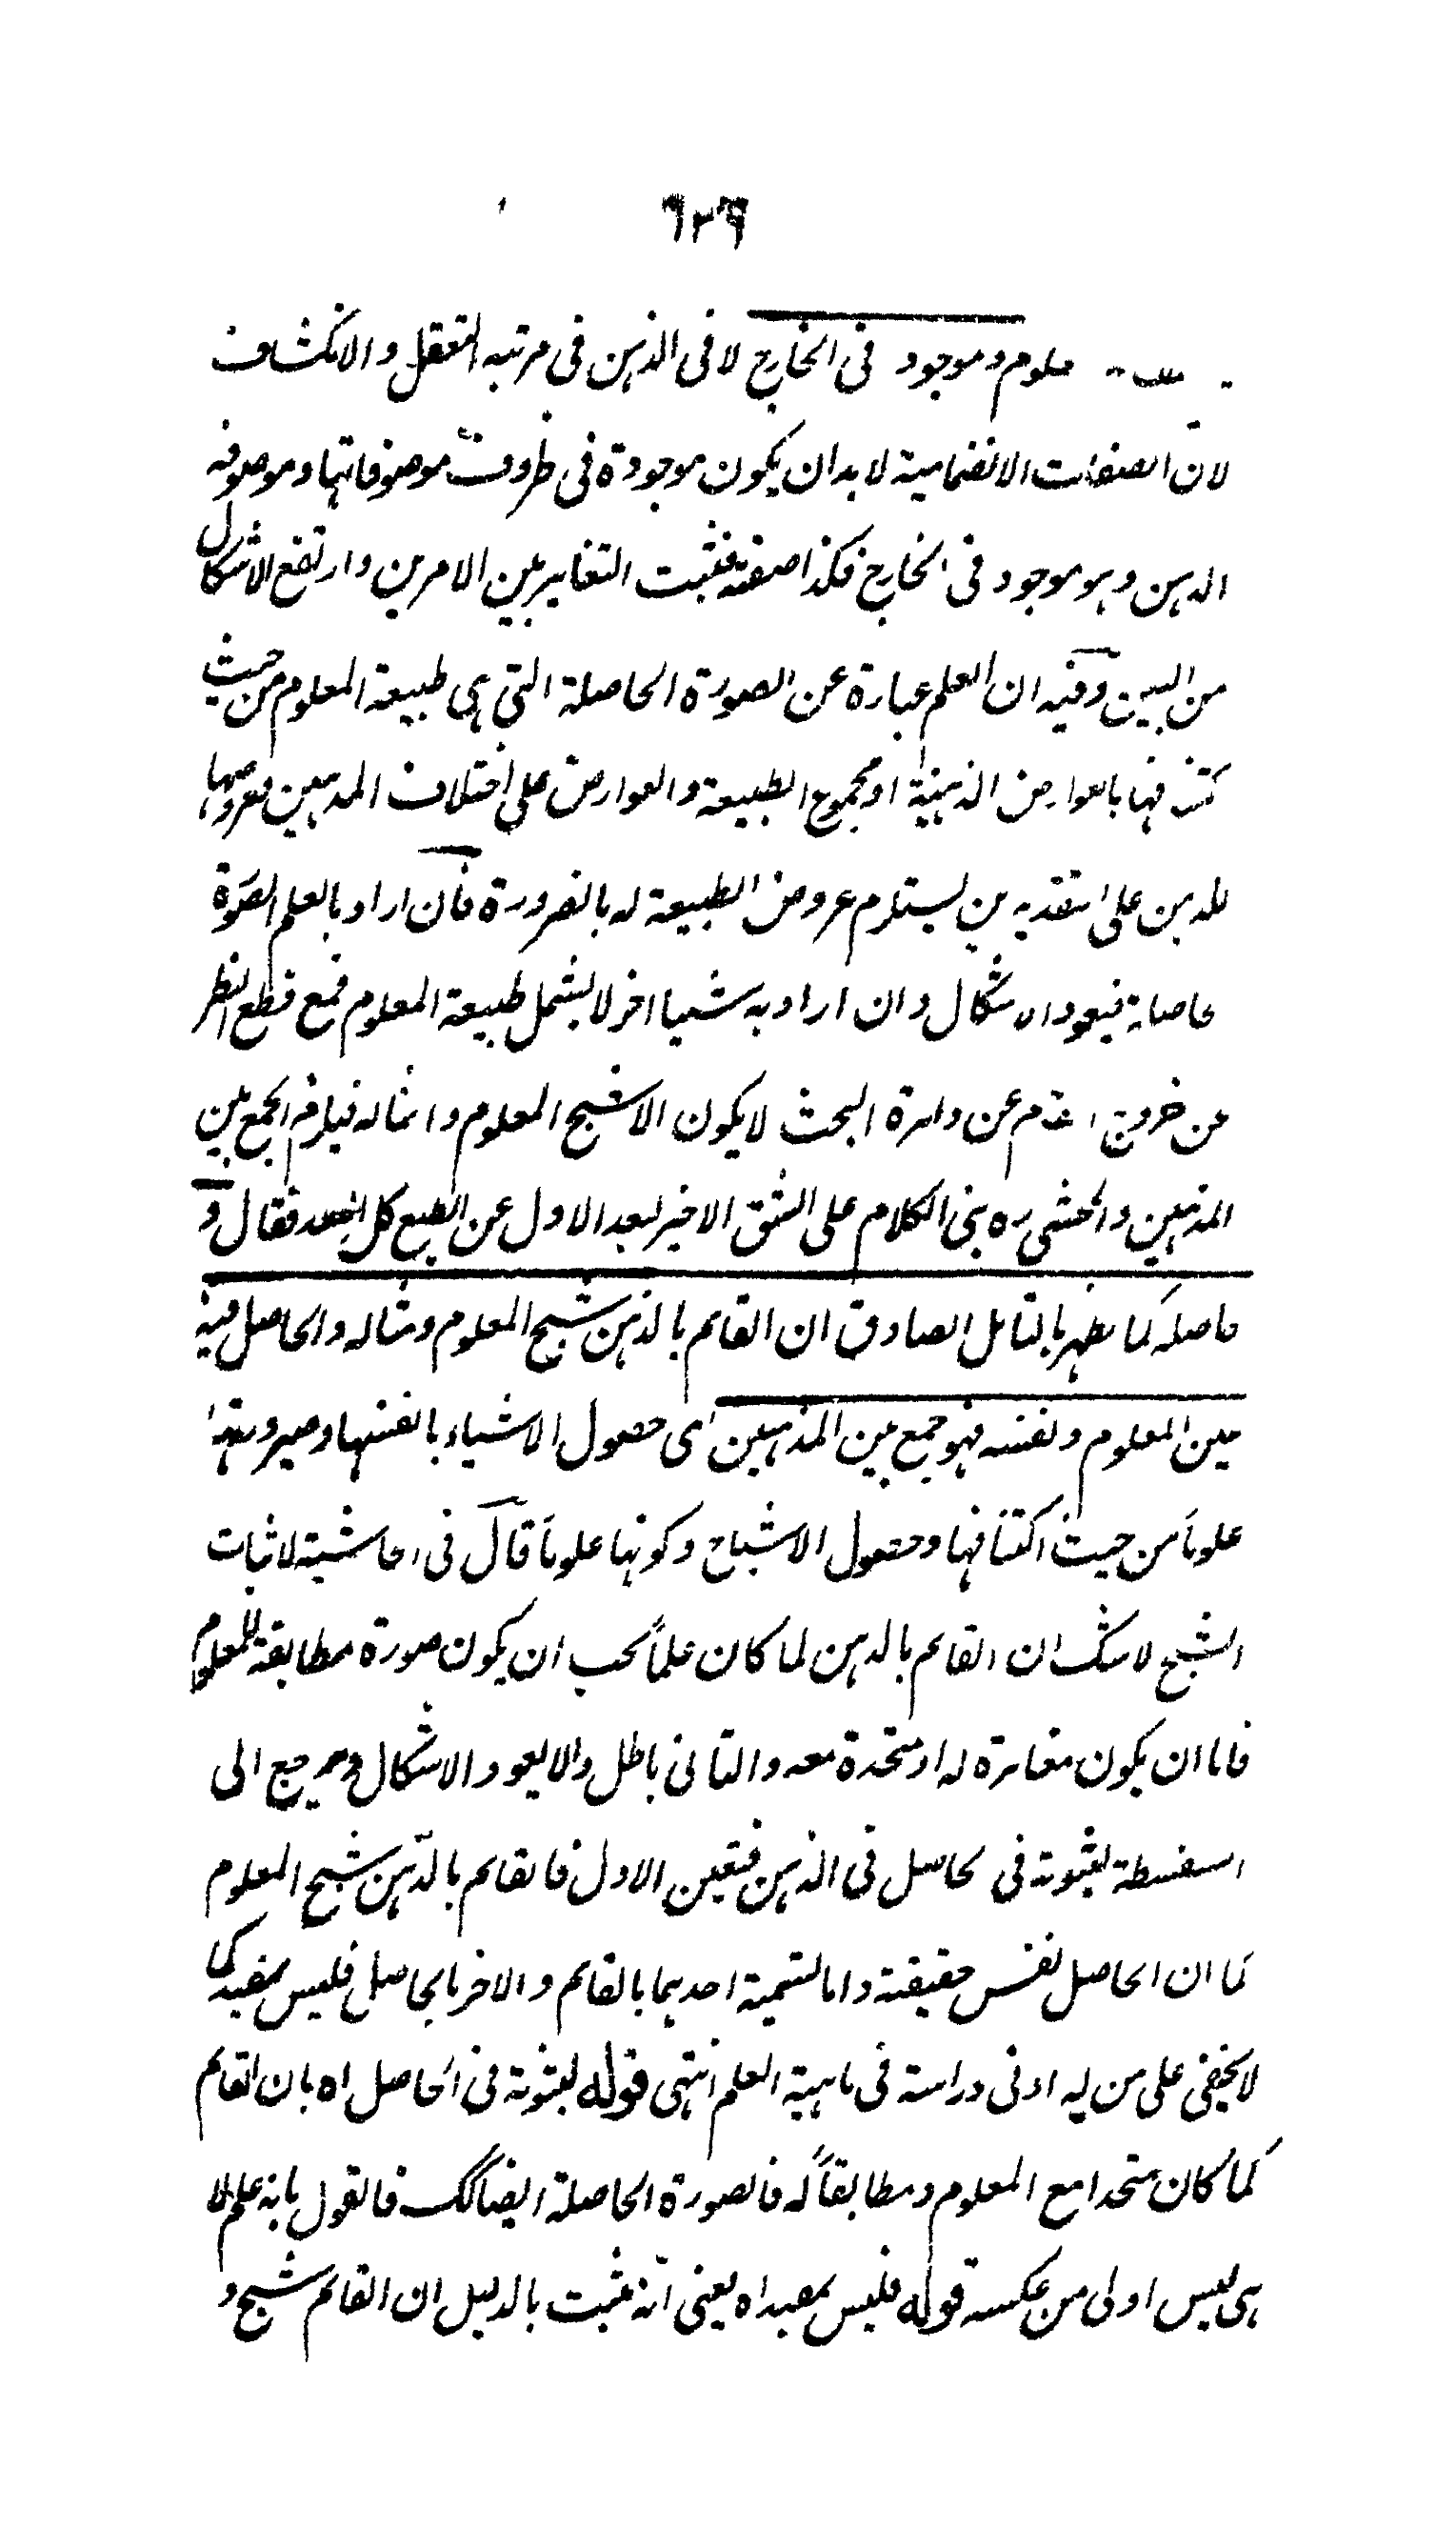 ٦٢٦
معلوم وموجود فى الخارج لا فى الذهن فى مرتبه التعقل والانكشاف
لان الصفات الانضمامية لابد ان يكون موجودة فى ظروف موصوفاتها وموصوفه
الذهن وهو موجود فى الخارج فكذا صفته فثبت التغاير بين الامرين وارتفع الاشكال
من البين وفيه ان العلم عبارة عن الصورة الحاصلة التى هى طبيعة المعلوم من حيث
كتنافها بالعوارض الذهنية او مجموع الطبيعة والعوارض على اختلاف المذهبين وعروضها
للذهن على التقديرين يستلزم عروض الطبيعة له بالضرورة فان اراد بالعلم الصورة
حاصلة فيعود الاشكال وان اراد به شيئا اخر لا يشمل طبيعة المعلوم فمع قطع النظر
عن خروج عن دائرة البحث لا يكون الا شبح المعلوم وامثاله فيلزم الجمع بين
المذهبين والمحشى ره بنى الكلام على الشق الاخير لبعد الاول عن الطبع كل البعد فقال و
حاصله كما يظهر بالتامل الصادق ان القائم بالذهن شبح المعلوم ومثاله والحاصل فيه
عين المعلوم ونفسه فهو جمع بين المذهبين اى حصول الاشياء بانفسها وصيرورتها
علوما من حيث اكتنافها وحصول الاشباح وكونها علوما قال فى الحاشية لاثبات
الشبح لا شك ان القائم بالذهن لما كان علماً يجب ان يكون صورة مطابقة للمعلوم
فاما ان يكون مغائرة له او متحدة معه والثانى باطل والا يعود الاشكال ويرجع الى
السفسطة بثبوته فى الحاصل فى الذهن فتعين الاول فالقائم بالذهن شبح المعلوم
كما ان الحاصل نفس حقيقته واما تسمية احدهما بالقائم والاخر بالحاصل فليس بمفيد كما
لا يخفى على من له ادنى دراسة فى ماهية العلم انتهى قوله بثبوته فى الحاصل اه بان القائم
كما كان متحدا مع المعلوم ومطابقاً له فالصورة الحاصلة ايضا كك فالقول بانه علم لا
هى ليس اولى من عكسه قوله فليس بمفيد اه يعنى انه يثبت بالدليل ان القائم شبح و